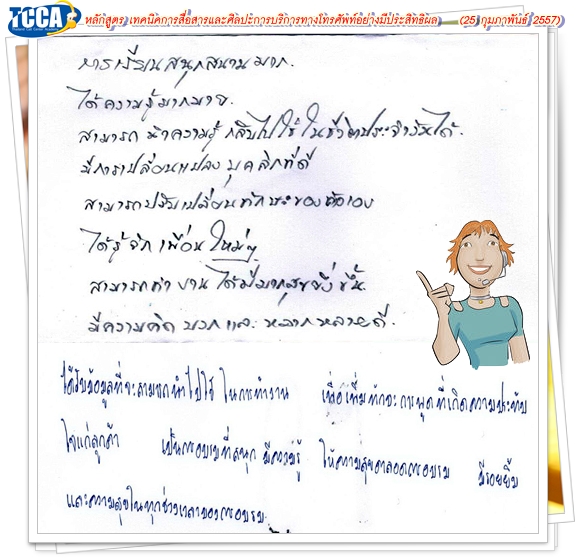 TCCA
Thailand Call Center Academy
หลักสูตร เทคนิคการสื่อสารและศิลปะการบริการทางโทรศัพท์อย่างมีประสิทธิผล (25 กุมภาพันธ์ 2557)
การเรียนสนุกสนานมาก.
ได้ความรู้มากมาย.
สามารถนำความรู้กลับไปใช้ในชีวิตประจำวันได้.
มีการเปลี่ยนแปลงบุคลิกที่ดี
สามารถปรับเปลี่ยนทักษะของตัวเอง
ได้รู้จักเพื่อนใหม่ๆ
สามารถทำงานได้มีมากสุขยิ่งขึ้น
มีความคิดบวกและหลากหลายดี.
ได้รับข้อมูลที่จะสามารถนำไปใช้ในการทำงาน เพื่อเพิ่มทักษะการพูดที่เกิดความประทับ
ใจแก่ลูกค้า เป็นการอบรมที่สนุก มีความรู้ ให้ความสุขตลอดการอบรม มีรอยยิ้ม
และความสุขในทุกช่วงเวลาของการอบรม